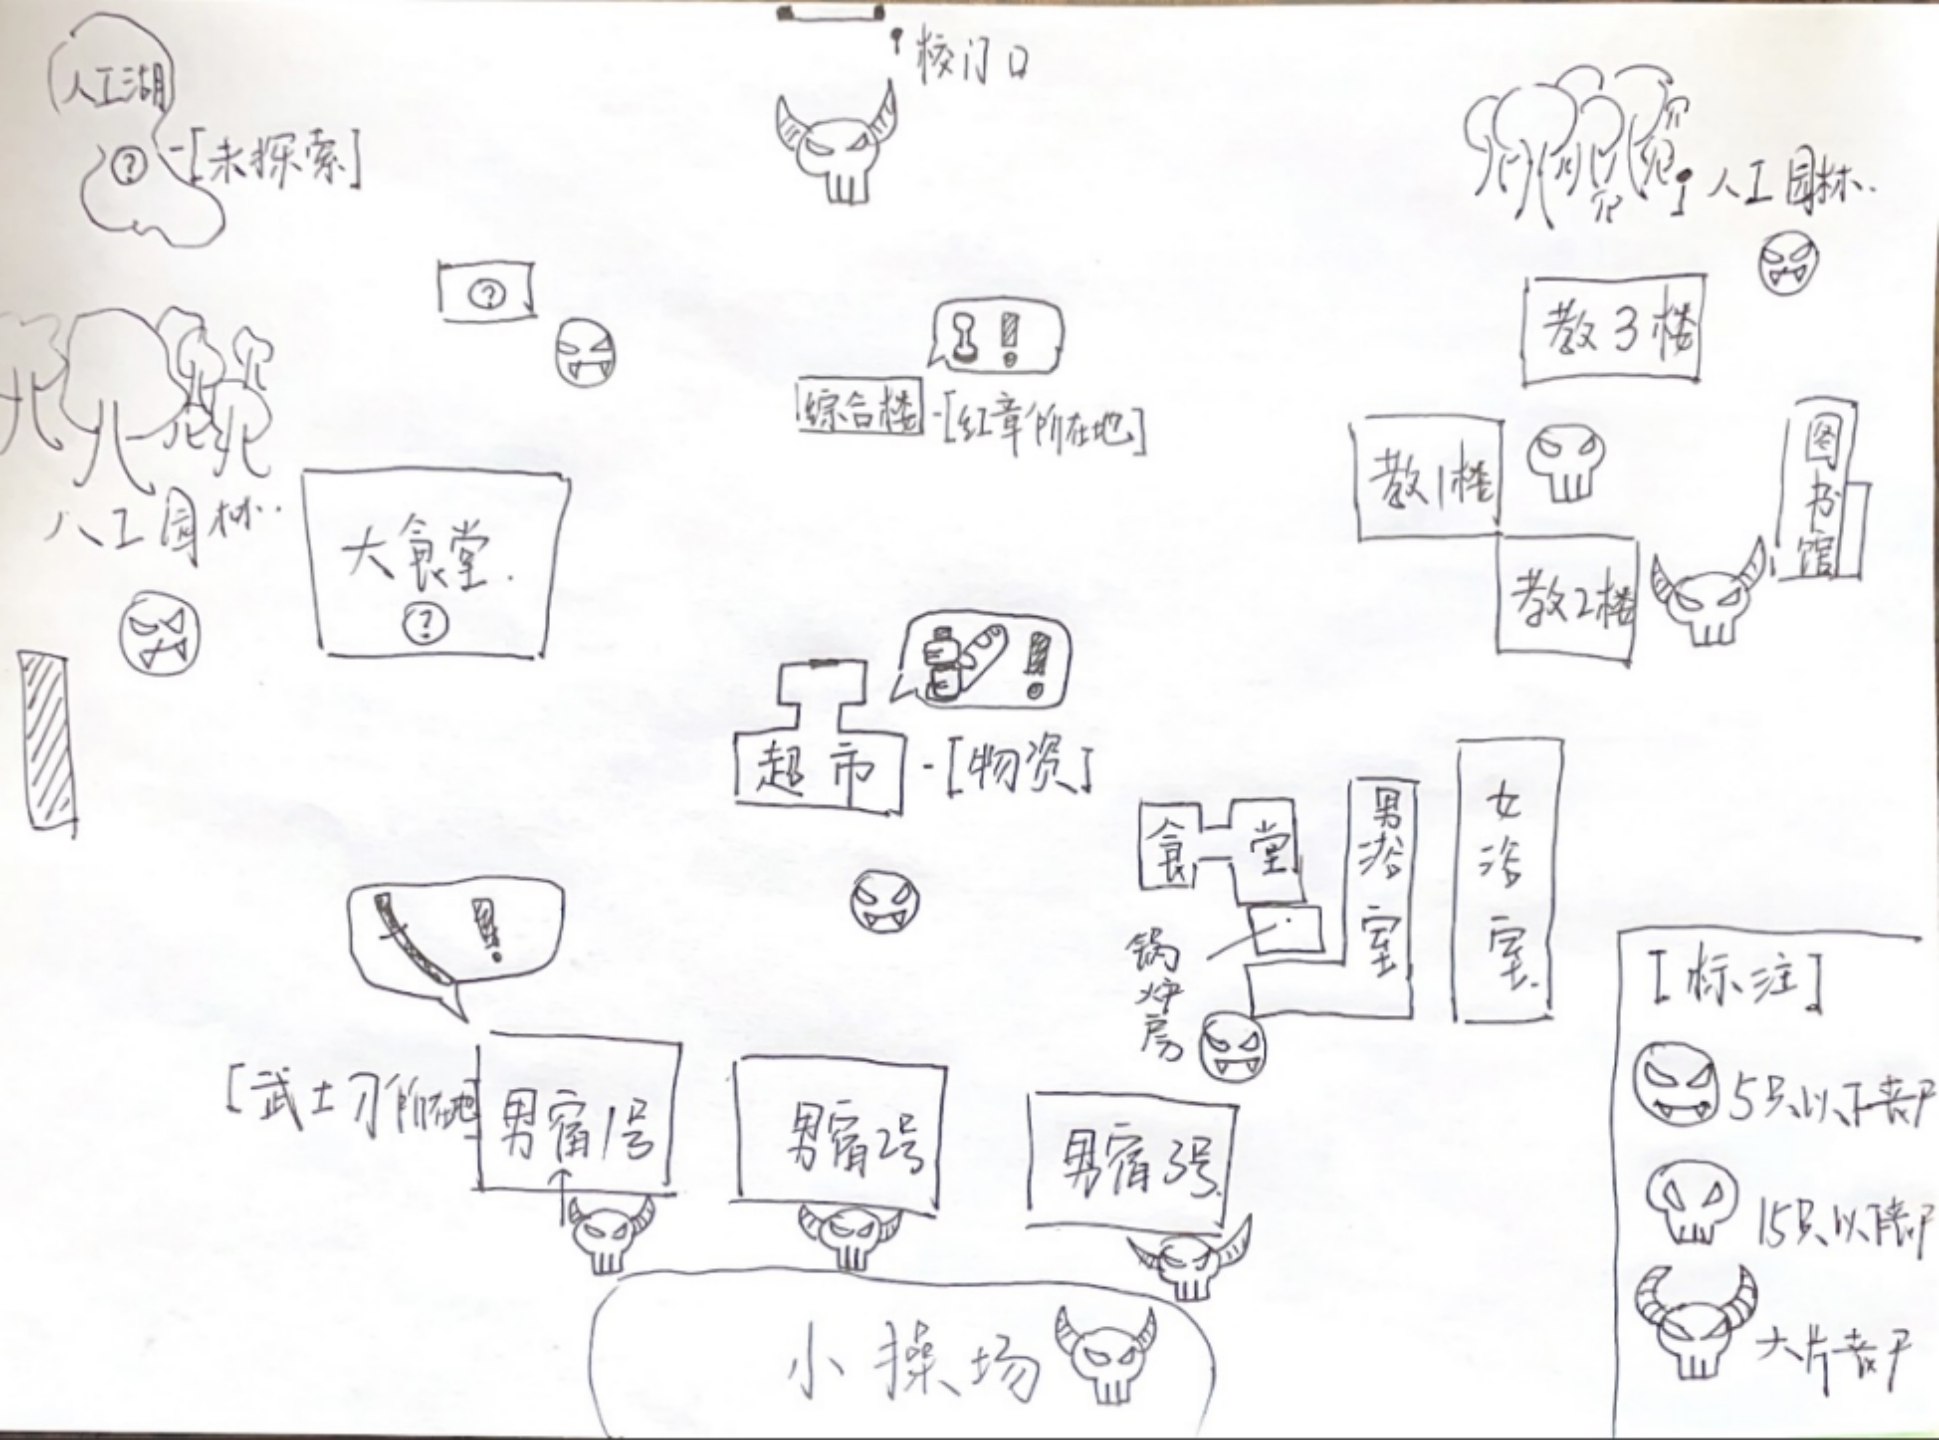 人工湖
?
-[未探索]
校门口
人工园林
教3楼
?
!
综合楼
-[红章所在地]
教1楼
图书馆
教2楼
人工园林
大食堂
?
!
超市
-[物资]
食堂
男浴室
女浴室
锅炉房
!
[武士刀所在地]
男宿1号
男宿2号
男宿3号
小操场
[标注]
5只以下丧尸
15只以下丧尸
大片丧尸